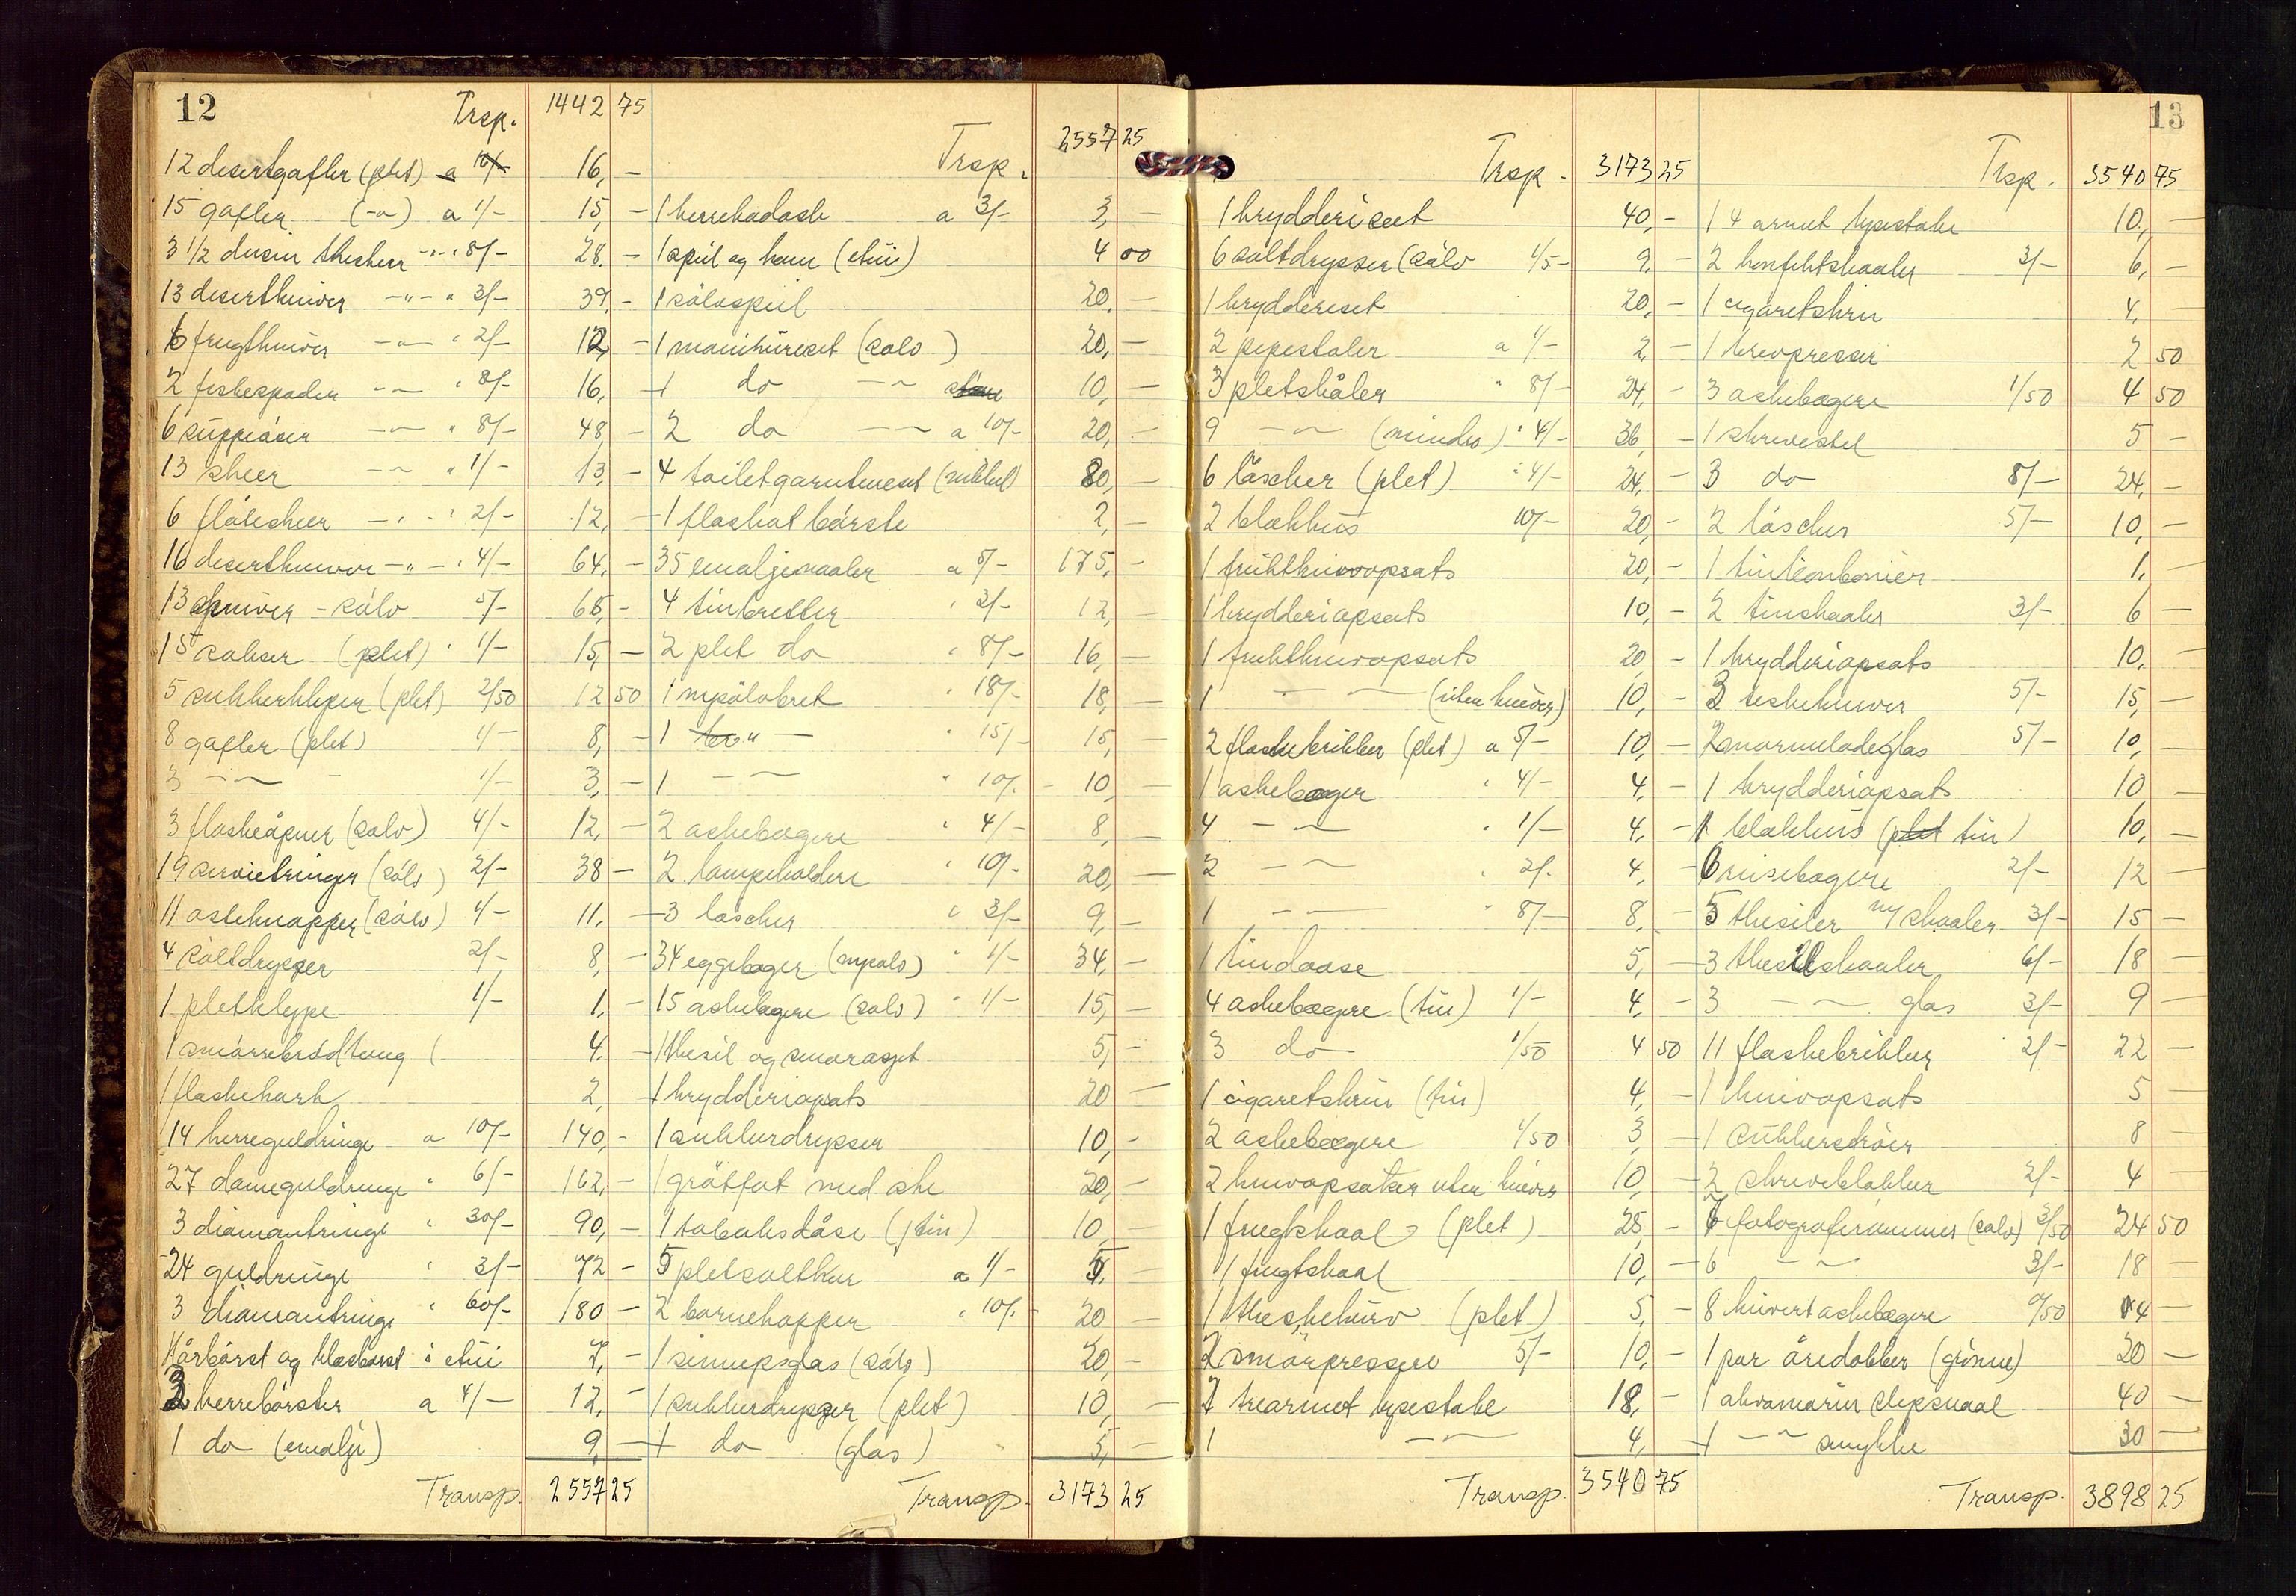 12
Trsp. 1442 75
12 desertgafler (plet) a 16/- 16, -
15 gafler (-"-) a 1/- 15, -
3 1/2 dusin theskeer -"- " 8/- 28. -
13 desertkniver -"- " 3/- 39, -
6 frugtkniver -"- " 2/- 12, -
2 fiskespader -"- " 8/- 16, -
6 suppeöser -"- " 8/- 48, -
13 skeer -"- " 1/- 13, -
6 flöteskeer -"- " 2/- 12, -
16 desertkniver -"- " 4/- 64, -
13 kniver - sölv 5/- 65, -
15 sakser (plet) " 1/- 15, -
5 sukkerklyper (plet) 2/50 12 50
8 gafler (plet) 1/- 8, -
3 -"- 1/- 3, -
3 flaskeåpner (sølv) 4/- 12, -
19 servietringer (sölv) 2/- 38 -
11 ostehnapper (sölv) 1/- 11, -
4 saltdrysser 2/- 8, -
1 pletklype 1/- 1, -
1 smörrebrödtang ( 4. -
1 flaskekork 2, -
14 herreguldringe a 10/- 140, -
27 dameguldringe " 6/- 162, -
3 diamantringe " 30/- 90, -
24 guldringe " 3/- 72 -
3 diamantringe " 60/- 180 -
Hårbörst og klæsbörst i etui 7, -
3 herrebörster a 4/- 12, -
1 do (emalje) 9, -
Transp. 2557 25
Trsp. 2557 25
1 herrekadask a 3/- 3, -
1 speil og kam (etui) 4 00
1 sölvspeil 20, -
1 manikureset (sølv) 20, -
1 do -"- 10, -
2 do -"- a 10/- 20, -
4 toiletgarnement (nikkel) 80, -
1 flaskat börste 2, -
35 emaljenaaler a 5/- 175, -
4 tinbretter " 3/- 12, -
2 plet do " 8/- 16, -
1 nysölvbret " 18/- 18, -
1 -"- " 15/- 15, -
1 -"- " 10/- 10, -
2 askebægere " 4/- 8, -
2 lampeholdere " 10/- 20, -
3 löscher " 3/- 9, -
34 eggebæger (nysølv) " 1/- 34, -
15 askebægere (sølv) " 1/- 15, -
1 thesil og smöraspt 5, -
1 krydderiopsats 20 -
1 sukkerdrysser 10, -
1 grötfat med ske 20, -
1 tobaksdåse (tin) 10, -
5 pletsaltkar a 1/- 5, -
2 barnekopper " 10/- 20 -
1 sennepsglas (sölv) 20, -
1 sukkerdrysser (plet) 10, -
1 do (glas) 5, -
Transp. 3173 25
13
Trsp. 3173 25
1 krydderiset 40, -
6 saltdrysser (sölv 1/5- 9, -
1 krydderiset 20, -
2 pipestaler a 1/- 2, -
3 pletskåler " 8/- 24, -
9 -"- (mindre) " 4/- 36, -
6 löscher (plet) " 4/- 24, -
2 blækhus 10/- 20, -
1 fruktknivopsats 20, -
1 krydderiopsats 10, -
1 fruktknivopsats 20 -
1 -"- (uten kniver) 10, -
2 flaskebrikker (plet) a 5/- 10, -
1 askebæger " 4/- 4, -
4 -"- " 1/- 4, -
2 -"- " 2/- 4, -
1 -"- " 8/- 8, -
1 tindaase 5, -
4 askebægere (tin) 1/- 4, -
3 do 1/50 4 50
1 cigaretskrin (tin) 4, -
2 askebægere 1/50 3, -
2 knivopsatser uten kniver 10, -
1 frugtskaal (plet) 25, -
1 frugtskaal 10, -
1 theskekurv (plet) 5, -
2 smörpressere 5/- 10, -
2 trearmet lysestake 18, -
1 -"- 4, -
Transp. 3540 75
Trsp. 3540 75
1 4 armet lysestake 10, -
2 konfektskaaler 3/- 6, -
1 cigaretskrin 4, -
1 brevpresser 2 50
3 askebægere 1/50 4 50
1 skrivestel 5 -
3 do 8/- 24, -
2 löscher 5/- 10, -
1 tinbonbonier 1, -
2 tinskaaler 3/- 6 -
1 krydderiopsats 10, -
3 teskekurver 5/- 15, -
2 marmeladeglas 5/- 10, -
1 krydderiopsats 10 -
1 blækhus (plet tin) 10, -
6 reisebægere 2/- 12 -
5 thesiler m/ skaaler 3/- 15 -
3 thesilskaaler 6/- 18 -
3 -"- glas 3/- 9 -
11 flaskebrikker 2/- 22 -
1 knivopsats 5 -
1 sukkerströer 8 -
2 skriveblokker 2/- 4 -
7 fotograferammer (sølv) 3/50 24 50
6 -"- 3/- 18 -
8 kuvertaskebægere 0/50 4 -
1 par öredobber (grönne) 20 -
1 akvamarin slipsnaal 40 -
1 -"- smykke 30 -
Transp. 3898 25